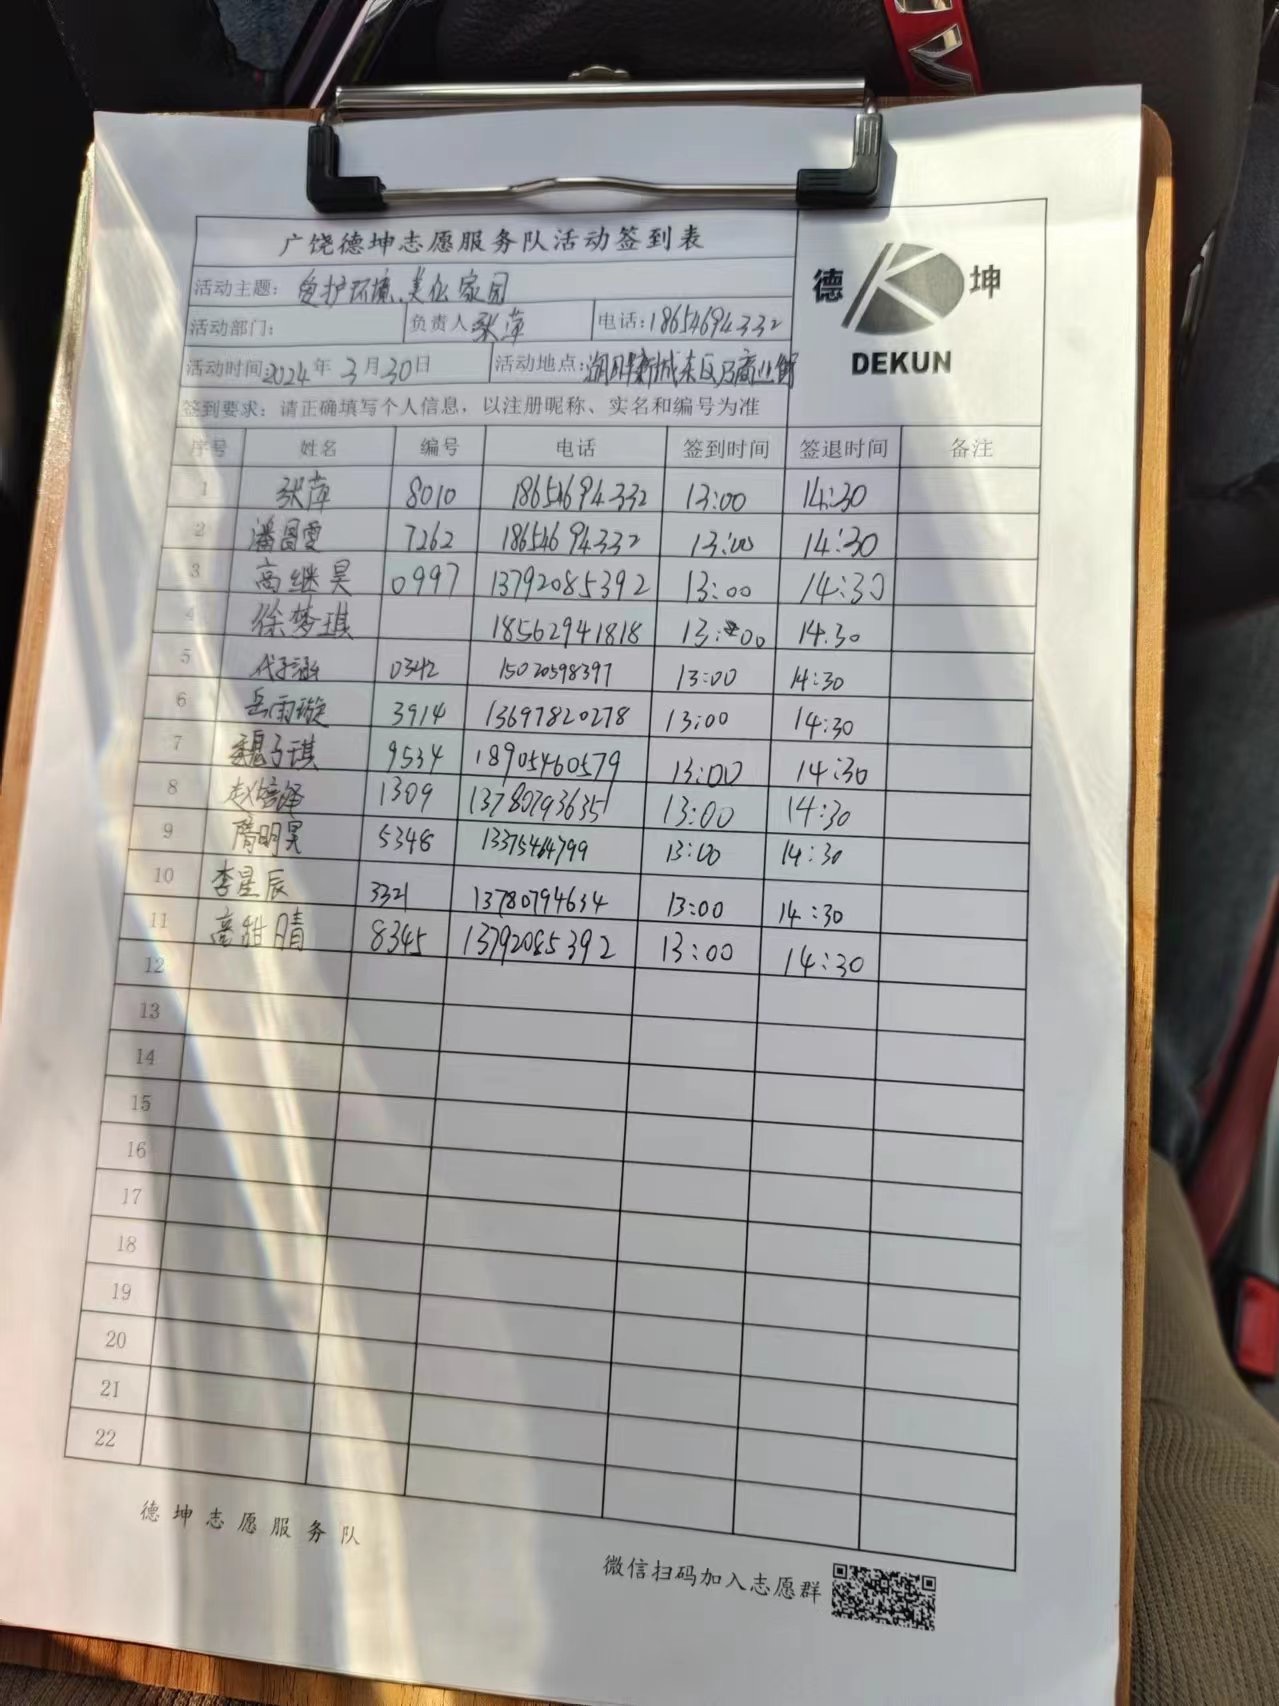 广饶德坤志愿服务队活动签到表
德 坤
DEKUN
活动主题: 爱护环境、美化家园
活动部门: 负责人 张萍 电话: 18654694332
活动时间: 2024年 3月30日 活动地点: 新城东区及商业街
签到要求: 请正确填写个人信息，以注册昵称、实名和编号为准
序号 姓名 编号 电话 签到时间 签退时间 备注
1 张萍 8010 18654694332 13:00 14:30
2 潘昌雯 7262 18654694332 13:00 14:30
3 高继昊 0997 13792085392 13:00 14:30
4 徐梦琪 18562941818 13:00 14:30
5 代子涵 0342 15020598397 13:00 14:30
6 岳雨璇 3914 13697820278 13:00 14:30
7 魏子琪 9534 18905460579 13:00 14:30
8 赵培泽 1309 13780793635 13:00 14:30
9 隋明昊 5348 13375464799 13:00 14:30
10 李星辰 3321 13780794634 13:00 14:30
11 高甜晴 8345 13792085392 13:00 14:30
12
13
14
15
16
17
18
19
20
21
22
德坤志愿服务队
微信扫码加入志愿群